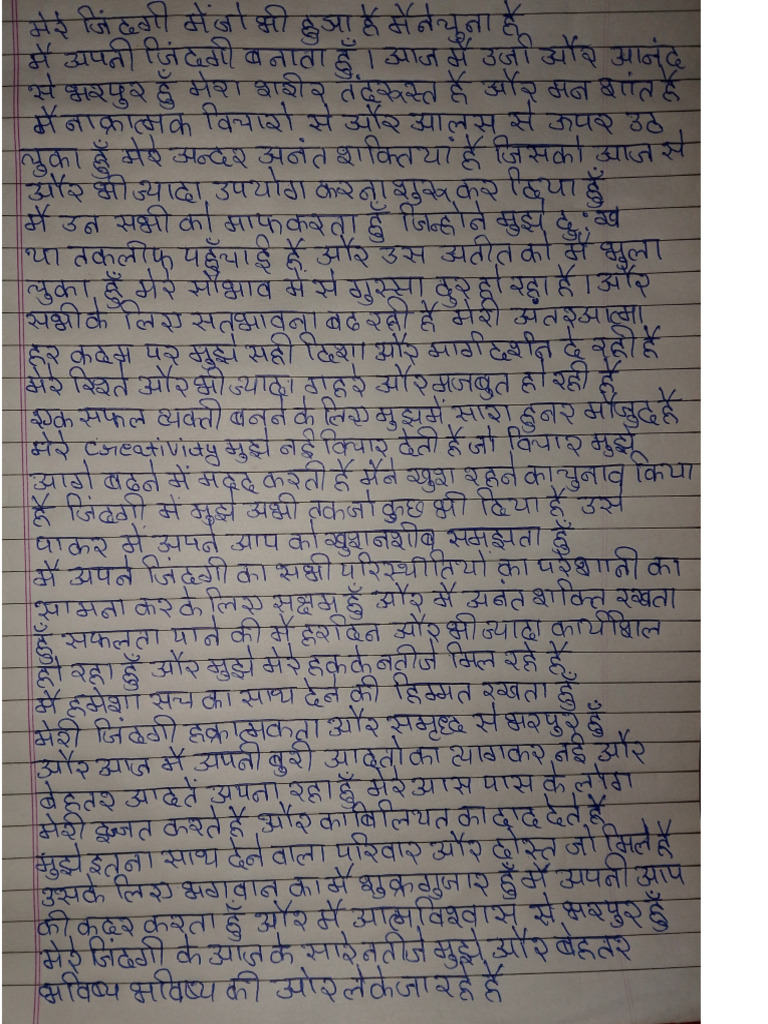 मेरे जिंदगी में जो भी हुआ है मैने चुना है
मै अपनी जिंदगी बनाता हुँ। आज मै उर्जा और आनंद
से भरपुर हुँ मेरा शरीर तंदरूस्त है और मन शांत है
मै नाक्रात्मक विचारो से और आलस से ऊपर उठ
चुका हुँ मेरे अन्दर अनंत शक्तियां है जिसको आज से
और भी ज्यादा उपयोग करना शुरू कर दिया हुँ
मै उन सभी को माफ करता हुँ जिन्होने मुझे दुःख
या तकलीफ पहुँचाई है और उस अतीत को मै भुला
चुका हुँ मेरे सौभाव में से गुस्सा दुर हो रहा है। और
सभी के लिए सतभावना बढ रही है मेरी अंतरआत्मा
हर कदम पर मुझे सही दिशा और मार्गदर्शन दे रही है
मेरे रिश्ते और भी ज्यादा गहरे और मजबुत हो रही है
एक सफल व्यक्ती बनने के लिए मुझमें सारा हुनर मौजुद है
मेरे creativity मुझे नई विचार देती है जो विचार मुझे
आगे बढने में मदद करती है मैने खुश रहने का चुनाव किया
है जिंदगी में मुझे अभी तक जो कुछ भी दिया है उसे
पाकर में अपने आप को खुशनशीब समझता हुँ
मै अपने जिंदगी का सभी परिस्थीतियो का परेशानी का
सामना कर के लिए सक्षम हुँ और मै अनंत शक्ति रखता
हुँ सफलता पाने की मै हर दिन और भी ज्यादा कार्यशिल
हो रहा हुँ और मुझे मेरे हक के नतीजे मिल रहे है
मै हमेशा सच का साथ देने की हिम्मत रखता हुँ
मेरी जिंदगी हक्रात्मकता और समृध्द से भरपुर हुँ
और आज मै अपनी बुरी आदतो का त्यागकर नई और
बेहतर आदतें अपना रहा हुँ मेरे आस पास के लोग
मेरी इज्जत करते है और काबिलियत का दाद देते है
मुझे इतना साथ देने वाला परिवार और दोस्त जो मिले है
उसके लिए भगवान का मै शुक्रगुजार हुँ मै अपनी आप
की कदर करता हुँ और मै आत्मविश्वास से भरपुर हुँ
मेरे जिंदगी के आज के सारे नतीजे मुझे और बेहतर
भविष्य भविष्य की ओर लेके जा रहे है